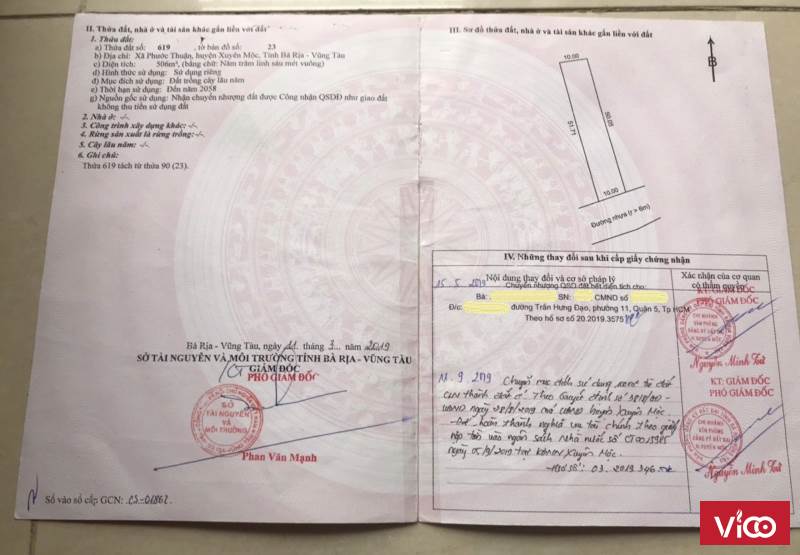 II. Thửa đất, nhà ở và tài sản khác gắn liền với đất
1. Thửa đất:
a) Thửa đất số: 619 , tờ bản đồ số: 23
b) Địa chỉ: Xã Phước Thuận, huyện Xuyên Mộc, Tỉnh Bà Rịa - Vũng Tàu
c) Diện tích: 506m², (bằng chữ: Năm trăm linh sáu mét vuông)
d) Hình thức sử dụng: Sử dụng riêng
đ) Mục đích sử dụng: Đất trồng cây lâu năm
e) Thời hạn sử dụng: Đến năm 2058
g) Nguồn gốc sử dụng: Nhận chuyển nhượng đất được Công nhận QSDĐ như giao đất
không thu tiền sử dụng đất
2. Nhà ở: -/-
3. Công trình xây dựng khác: -/-
4. Rừng sản xuất là rừng trồng: -/-
5. Cây lâu năm: -/-
6. Ghi chú:
Thửa 619 tách từ thửa 90 (23).
Bà Rịa - Vũng Tàu, ngày 21 tháng 3 năm 2019
SỞ TÀI NGUYÊN VÀ MÔI TRƯỜNG TỈNH BÀ RỊA - VŨNG TÀU
KT GIÁM ĐỐC
PHÓ GIÁM ĐỐC
SỞ
TÀI NGUYÊN
VÀ
MÔI TRƯỜNG
Phan Văn Mạnh
Số vào sổ cấp GCN: CS-01862
III. Sơ đồ thửa đất, nhà ở và tài sản khác gắn liền với đất
B
10.00
51.71
50.05
10.00
Đường nhựa (r > 6m)
IV. Những thay đổi sau khi cấp giấy chứng nhận
Nội dung thay đổi và cơ sở pháp lý
Xác nhận của cơ quan
có thẩm quyền
15.5.2019
Chuyển nhượng QSD đất hết diện tích cho:
Bà: SN: CMND số
Đ/c: đường Trần Hưng Đạo, phường 11, Quận 5, Tp HCM
Theo hồ sơ số 20.2019.3575
KT. GIÁM ĐỐC
PHÓ GIÁM ĐỐC
CHI NHÁNH
VĂN PHÒNG
ĐĂNG KÝ ĐẤT ĐAI
H. XUYÊN MỘC
Nguyễn Minh Tứ
9 2019 Chuyển mục đích sử dụng từ đất
CLN thành đất ở. Theo Quyết định số
UBND ngày 28/8/2019 của UBND huyện Xuyên Mộc -
Đã hoàn thành nghĩa vụ tài chính theo giấy
nộp tiền vào ngân sách Nhà nước số
ngày 05/9/2019 tại KBNN Xuyên Mộc.
Hồ sơ: 03.2019.346
KT: GIÁM ĐỐC
PHÓ GIÁM ĐỐC
CHI NHÁNH
VĂN PHÒNG
ĐĂNG KÝ ĐẤT ĐAI
H. XUYÊN MỘC
Nguyễn Minh Tứ
Vico